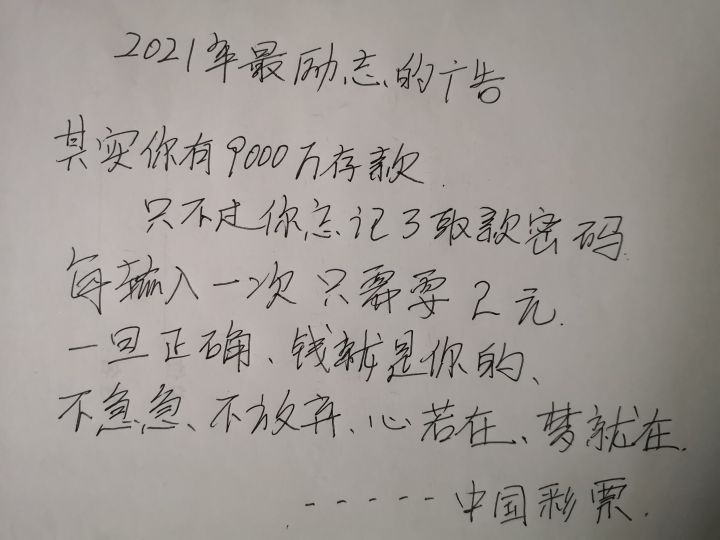 2021年最励志的广告
其实你有9000万存款.
只不过你忘记了取款密码.
每输入一次 只需要2元.
一旦正确、钱就是你的、
不急急、不放弃、心若在、梦就在.
-----中国彩票.